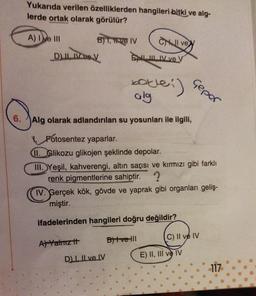 Yukarıda verilen özelliklerden hangileri bitki ve alg-
lerde ortak olarak görülür?
A) I ve III
B) I, II ve IV
C) I, II ve V
D) II, IV ve V
E) II, III, IV ve V
alg
6. Alg olarak adlandırılan su yosunları ile ilgili,
I. Fotosentez yaparlar.
II. Glikozu glikojen şeklinde depolar.
III. Yeşil, kahverengi, altın sarısı ve kırmızı gibi farklı
renk pigmentlerine sahiptir. ?
IV. Gerçek kök, gövde ve yaprak gibi organları geliş-
miştir.
ifadelerinden hangileri doğru değildir?
A) Yalnız II
B) I ve III
C) II ve IV
D) I, II ve IV
E) II, III ve IV
117